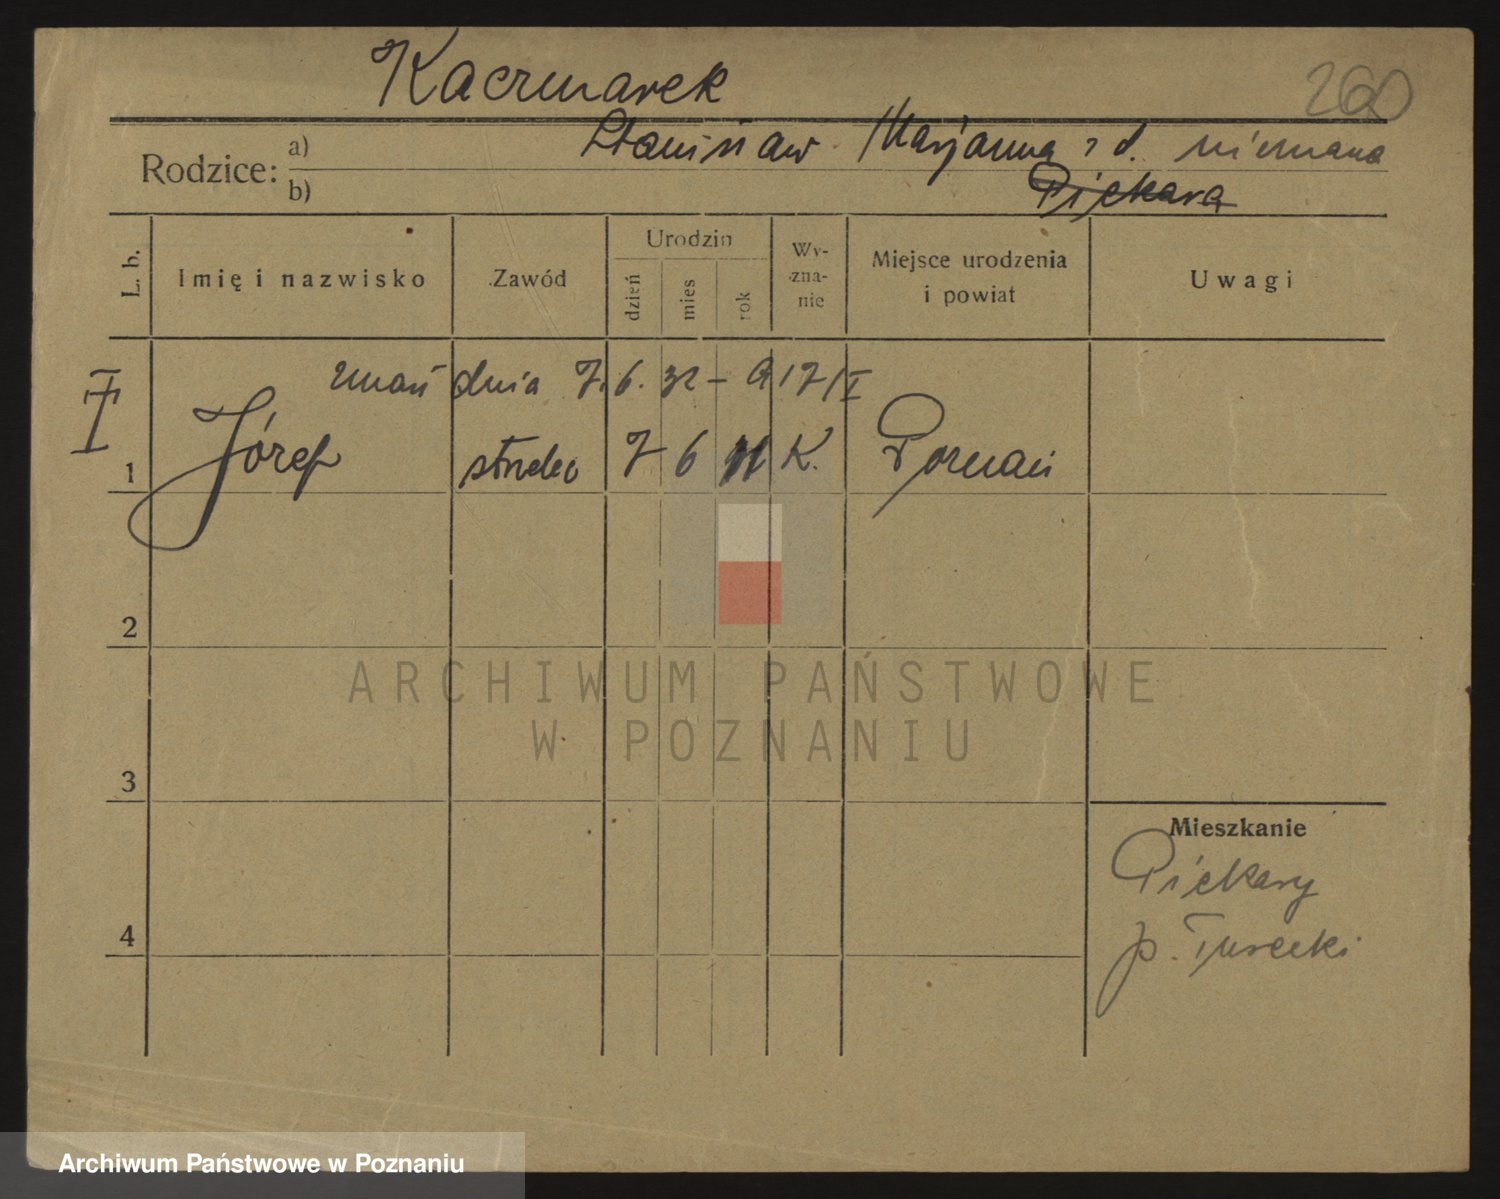 Kaczmarek
260
Stanisław Marjanna z d. nieznana
Rodzice: a)
b)
Piekara
L. b.
Imię i nazwisko
Zawód
Urodzin
dzień
mies
rok
Wy-
zna-
nie
Miejsce urodzenia
i powiat
Uwagi
zmarł dnia 7. 6. 32 – 917/I
1 Józef 7 6 11 K. Poznań
2
ARCHIWUM PAŃSTWOWE
W POZNANIU
3
Mieszkanie
Piekary
p. Turecki
4
Archiwum Państwowe w Poznaniu